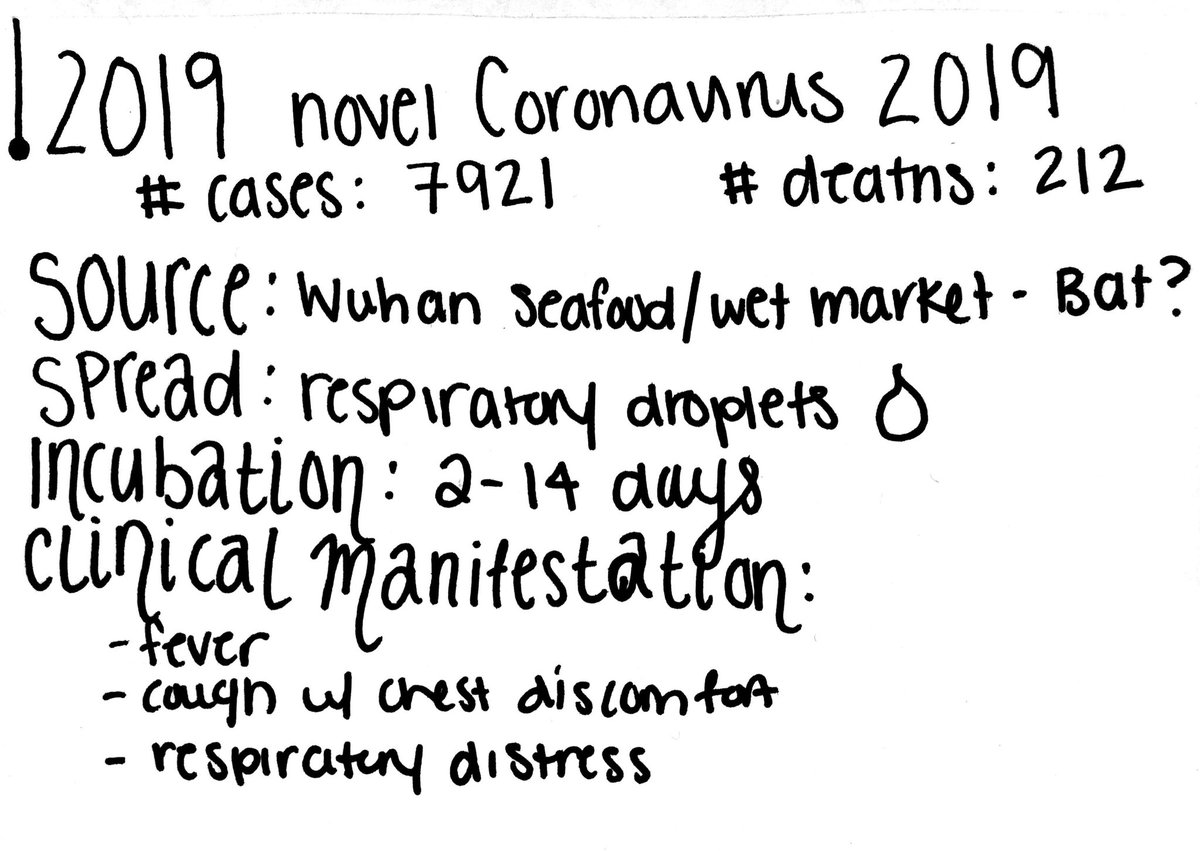 2019 novel Coronavirus 2019
# cases: 7921 # deaths: 212
Source: Wuhan seafood/wet market - Bat?
Spread: respiratory droplets
Incubation: 2-14 days
Clinical manifestation:
- fever
- cough w/ chest discomfort
- respiratory distress